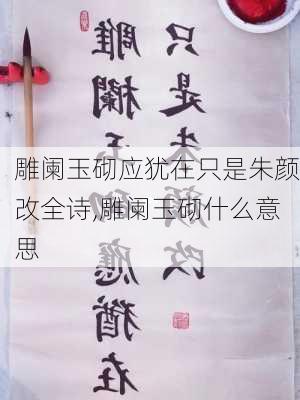 雕欄玉砌應猶在
只是朱顏改
雕阑玉砌应犹在只是朱颜
改全诗,雕阑玉砌什么意
思